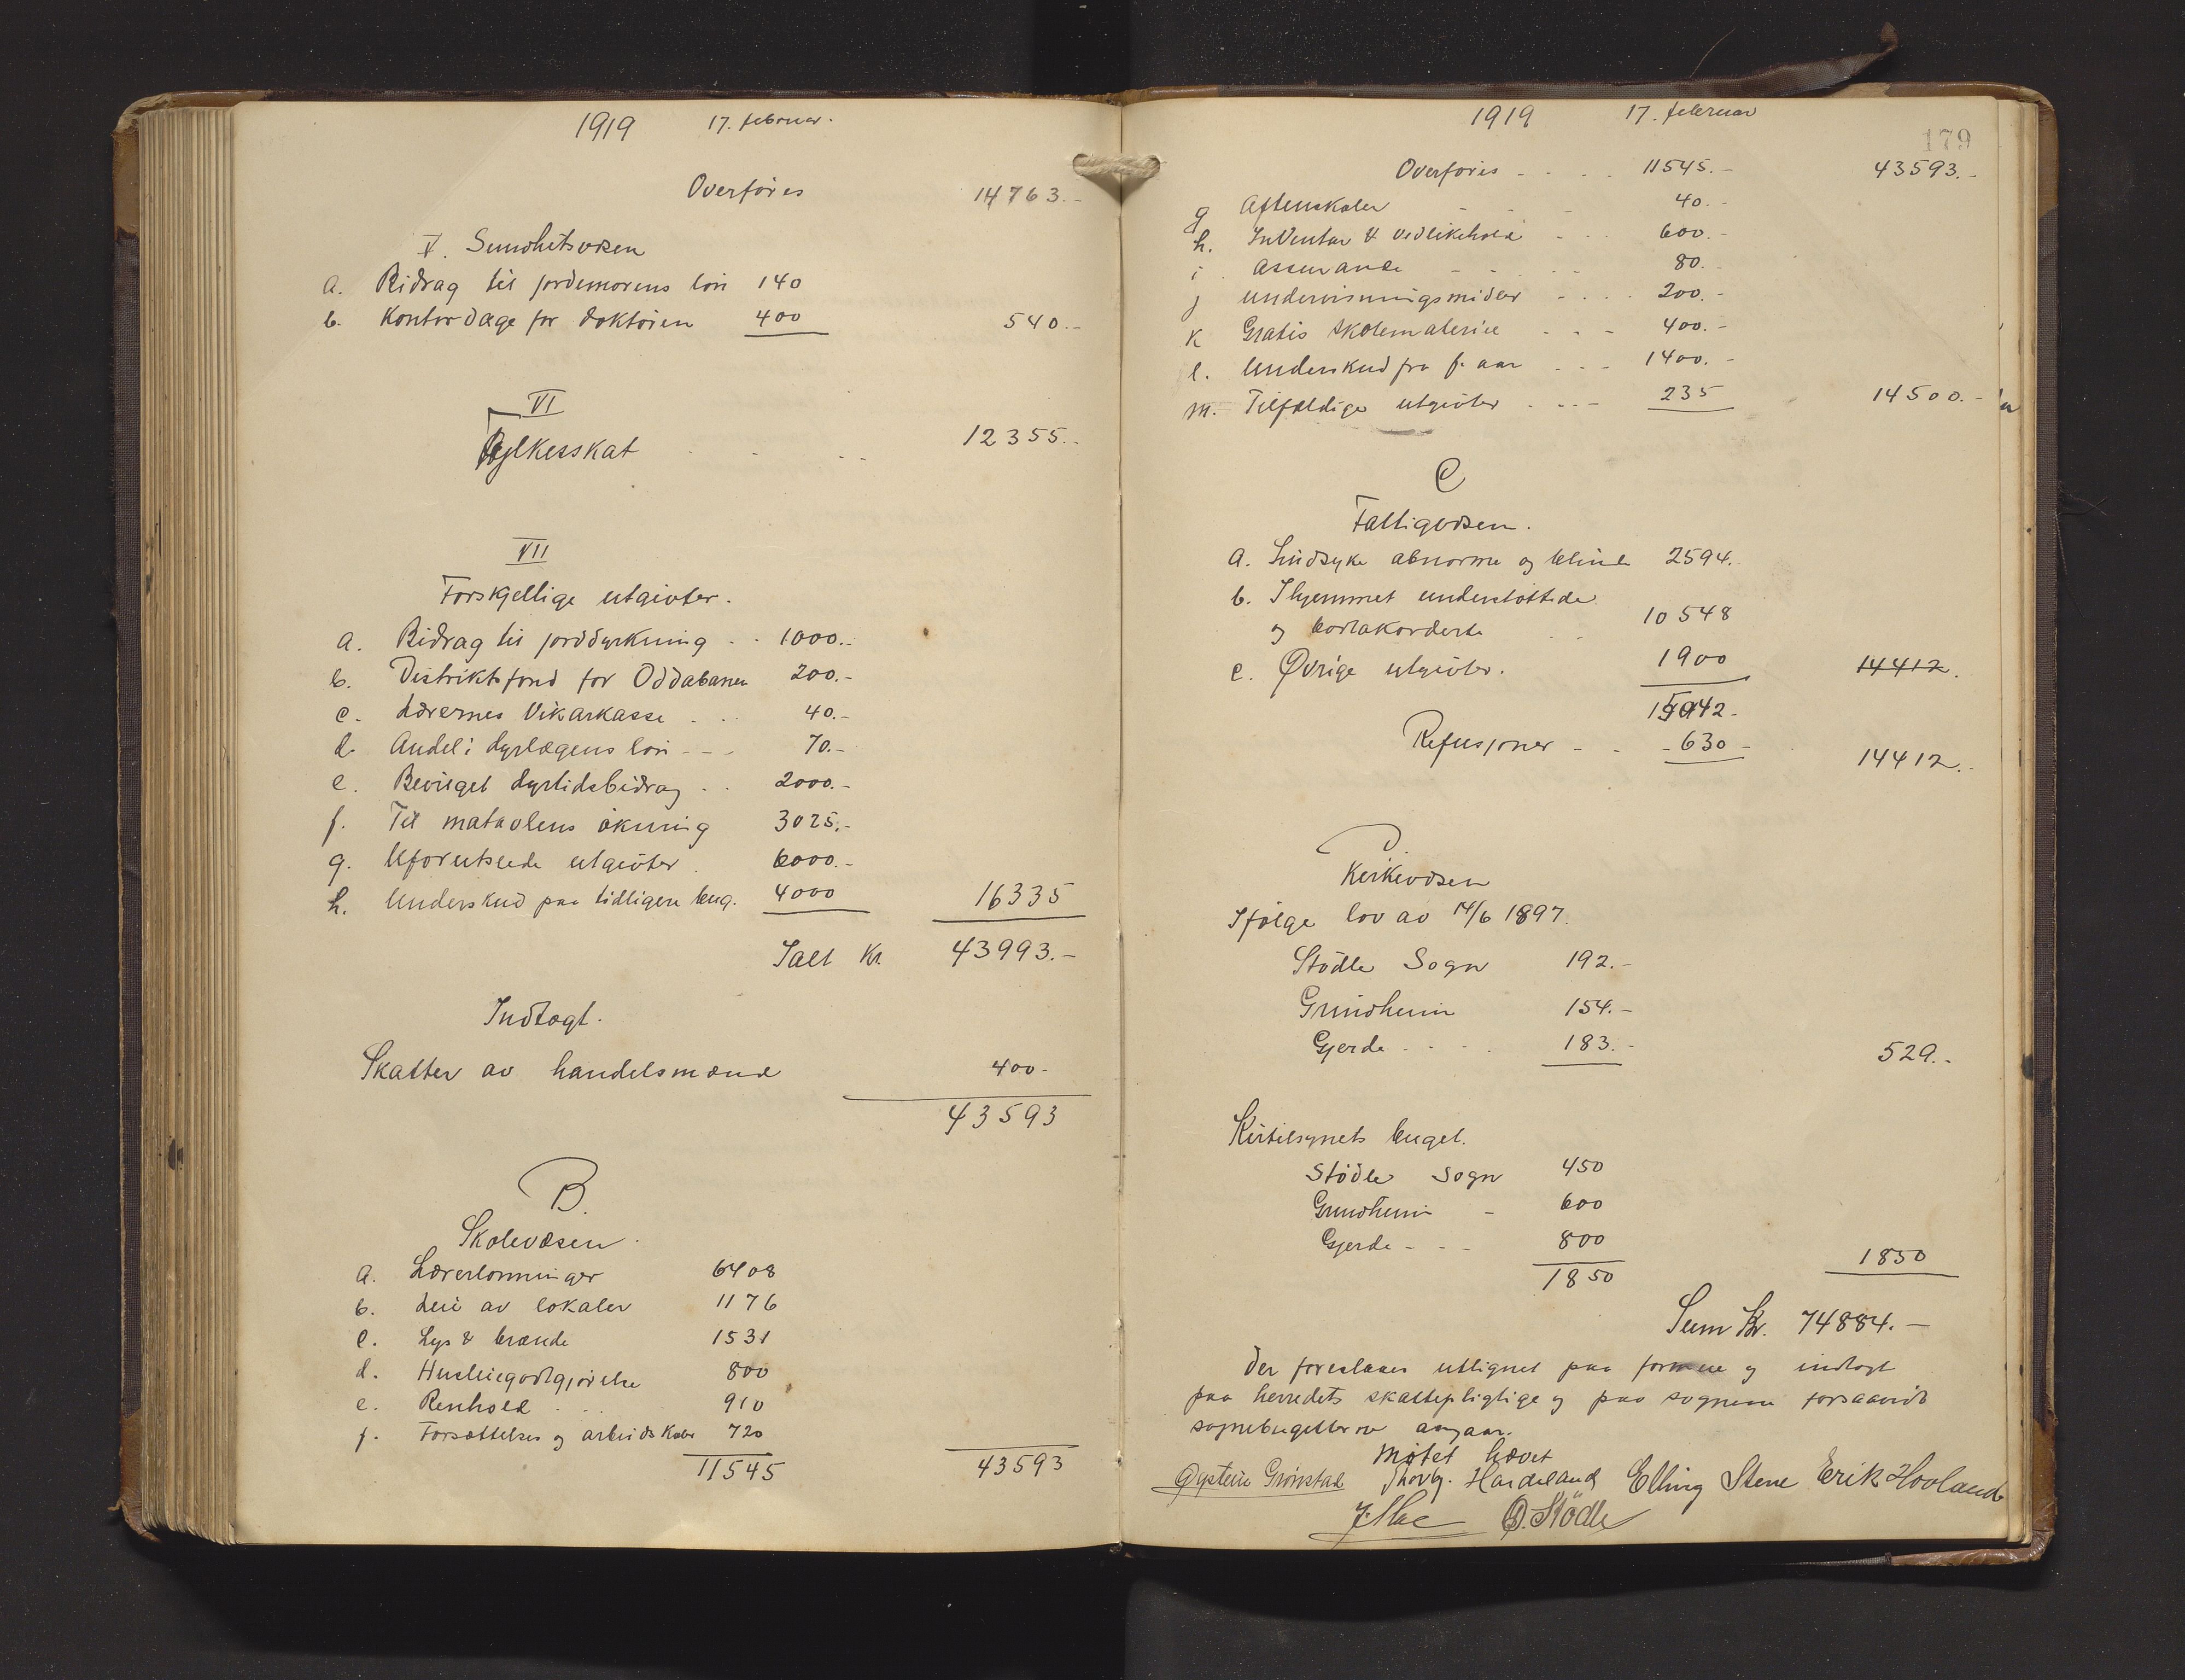 1919 17. februar.
Overføres 14763.-
V. Sundhetsvæsen
a. Bidrag til jordemorens løn 140
b. Kontordage for doktoren 400 540.-
VI
Fylkesskat 12355.-
VII
Forskjellige utgivter.
a. Bidrag til jorddyrkning 1000.-
b. Distriktsfond for Oddabanen 200.-
c. Lærernes Vikarkasse 40.-
d. Andel i dyrlægens løn 70.-
e. Bevilget dyrtidsbidrag 2000.-
f. Til matavlens økning 3025.-
g. Uforutseede utgivter 6000.-
h. Underskud paa tidligere bug. 4000 16335
Ialt Kr. 43993.-
Indtægt.
Skatter av handelsmænd 400.-
43593
B.
Skolevæsen.
a. Lærerlønninger 6408
b. Leie av lokaler 1176
c. Lys & brænde 1531
d. Husleiegodtgjørelse 800
e. Renhold 910
f. Forsættelses og arbeidskoler 720
11545 43593
1919 17. februar
179
Overføres 11545.- 43593.-
g Aftenskoler 40.-
h. Inventar & vedlikehold 600.-
i. Assurance 80.-
j undervisningsmidler 200.-
k Gratis skolemateriel 400.-
l. Underskud fra f. aar 1400.-
m. Tilfældige utgivter 235 14500.-
C
Fattigvæsen.
a. Sindsyke abnorme og blinde 2594.
b. I hjemmet understøttede
og bortakorderte 10548
c. Øvrige utgivter. 1900 14412.
15042.-
Refusjoner 630 14412.-
D.
Kirkevæsen
Ifølge lov av 14/6 1897.
Stødle Sogn 192.-
Grindheim 154.-
Gjerde 183.- 529.-
Kirtilsynets buget.
Stødle Sogn 450
Grindheim - 600
Gjerde - 800 1850
1850
Sum Kr. 74884.-
Der foreslaaes utlignet paa formue og indtægt
paa herredets skattepligtige og paa sognene forsaavidt
sognebugetterne angaar.
Møtet hævet
Øystein Grønstad Thorbj. Hardeland Elling Stene Erik Hovland
O. Stödle